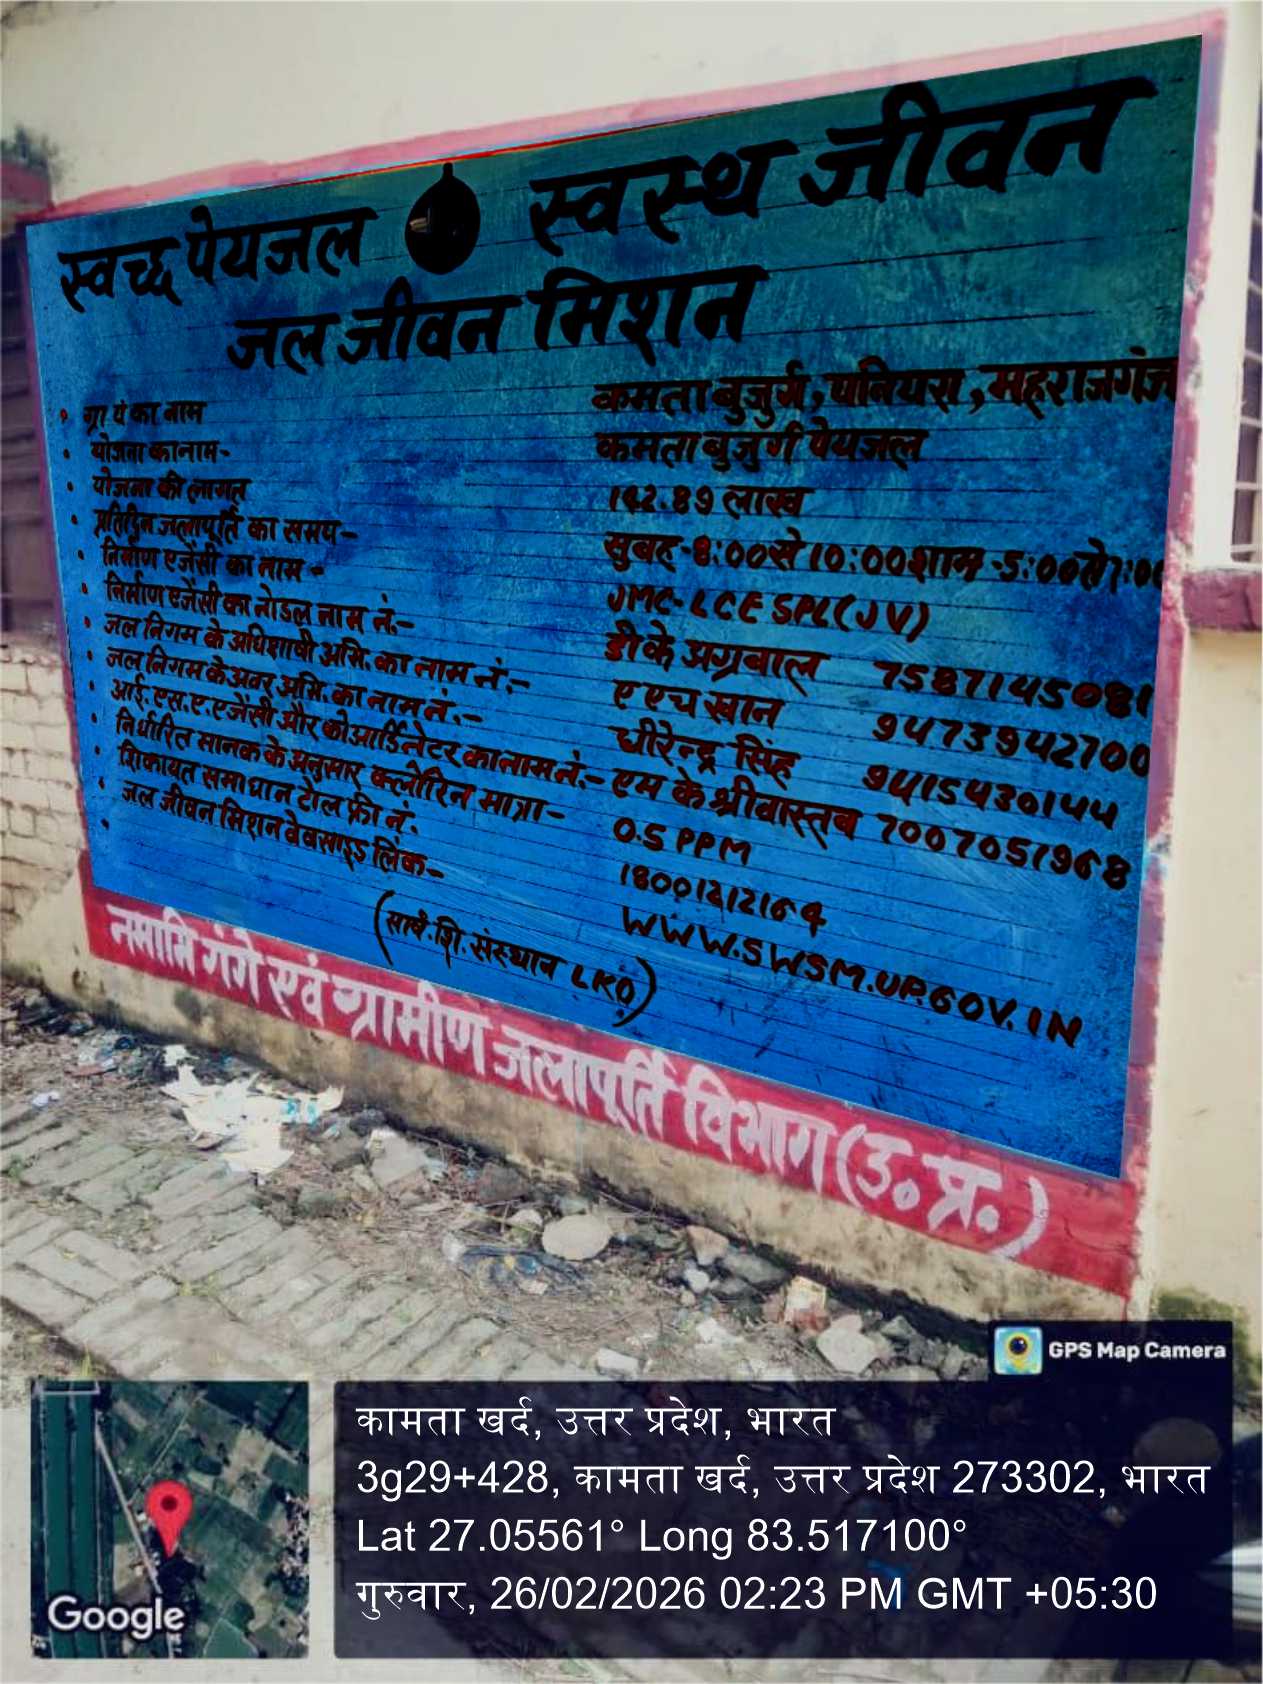 स्वच्छ पेयजल स्वस्थ जीवन
जल जीवन मिशन
• ग्रा पं का नाम कमता बुजुर्ग, पनियरा, महराजगंज
• योजना का नाम- कमता बुजुर्ग पेयजल
• योजना की लागत 142.89 लाख
• प्रतिदिन जलापूर्ति का समय- सुबह-8:00से 10:00शाम-5:00से7:00
• निर्माण एजेंसी का नाम - JMC-LCESPL(JV)
• निर्माण एजेंसी का नोडल नाम नं.- डीके अग्रवाल 7587145081
• जल निगम के अधिशाषी अभि. का नाम नं.- ए एच खान 9473942700
• जल निगम के अवर अभि. का नाम नं.- धीरेन्द्र सिंह 9415430144
• आई.एस.ए.एजेंसी और कोआर्डिनेटर का नाम नं.- एम के श्रीवास्तव 7007051968
• निर्धारित मानक के अनुसार क्लोरिन मात्रा- 0.5 PPM
• शिकायत समाधान टोल फ्री नं. 18001212164
• जल जीवन मिशन वेबसाइड लिंक- WWW.SWSM.UP.GOV.IN
(सार्व.शि.संस्थान LKO)
नमामि गंगे एवं ग्रामीण जलापूर्ति विभाग (उ.प्र.)
GPS Map Camera
कामता खर्द, उत्तर प्रदेश, भारत
3g29+428, कामता खर्द, उत्तर प्रदेश 273302, भारत
Lat 27.05561° Long 83.517100°
गुरुवार, 26/02/2026 02:23 PM GMT +05:30
Google